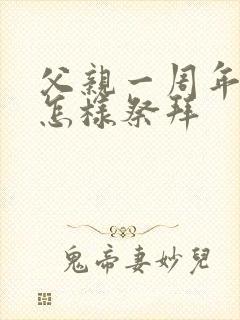 父親一周年
怎樣祭拜
鬼帝妻妙兒